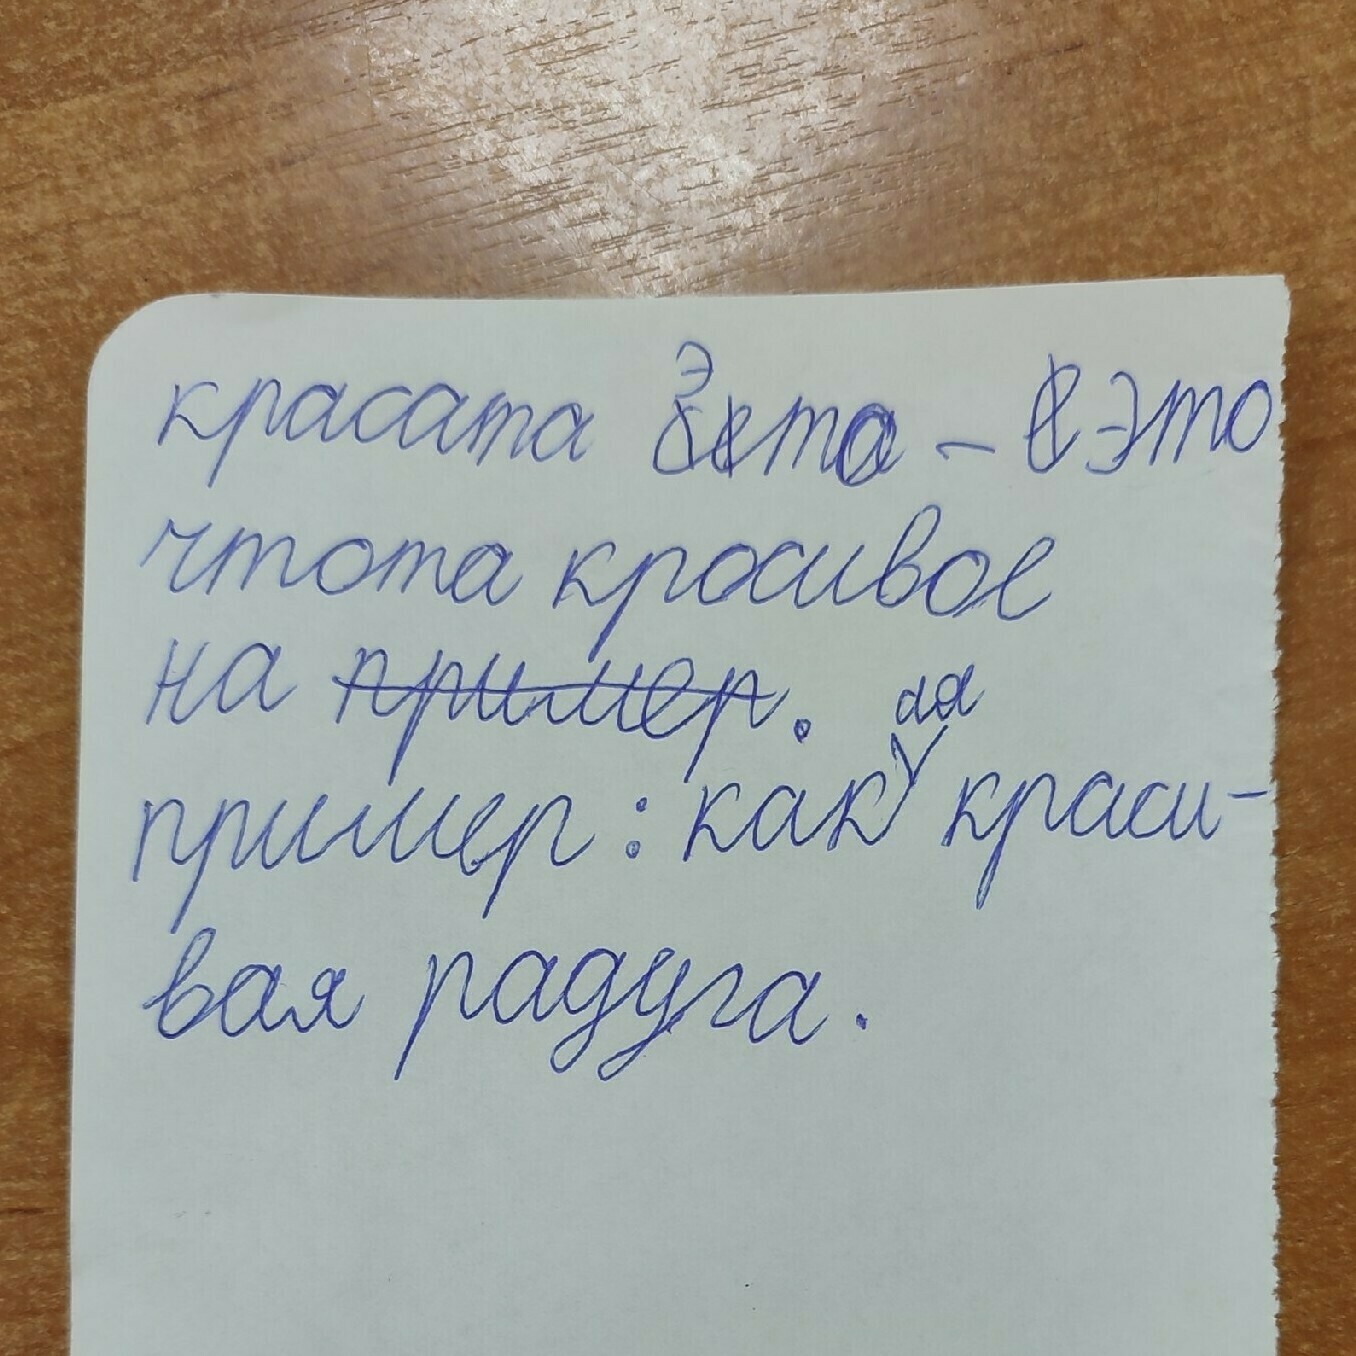 красата Эта - это
чтота кросивое
на пример.
пример: какая краси-
вая радуга.